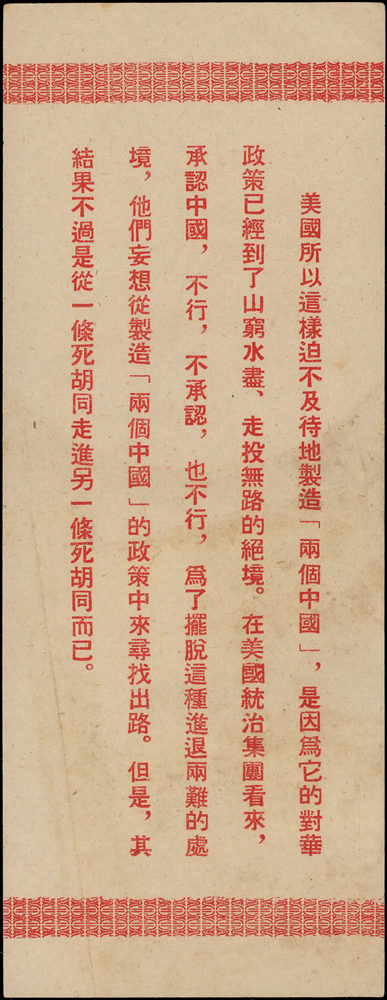 美國所以這樣迫不及待地製造「兩個中國」，是因爲它的對華
政策已經到了山窮水盡、走投無路的絕境。在美國統治集團看來，
承認中國，不行，不承認，也不行，爲了擺脫這種進退兩難的處
境，他們妄想從製造「兩個中國」的政策中來尋找出路。但是，其
結果不過是從一條死胡同走進另一條死胡同而已。